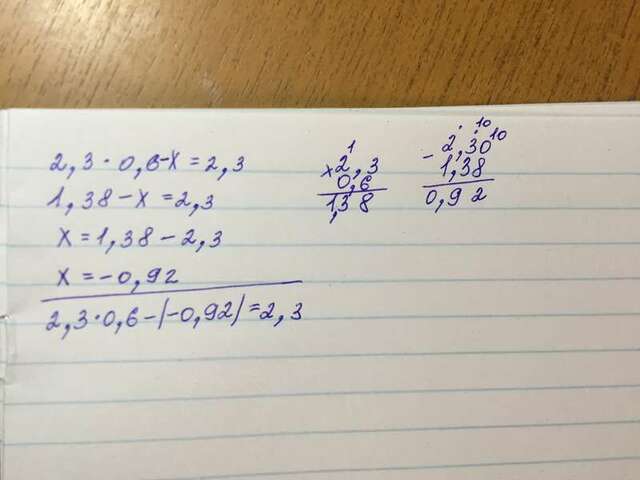 2,3·0,6-x=2,3
1,38-x=2,3
x=1,38-2,3
x=-0,92
2,3·0,6-(-0,92)=2,3
1
×2,3
0,6
1,38
. 10 10
-2,30
1,38
0,92